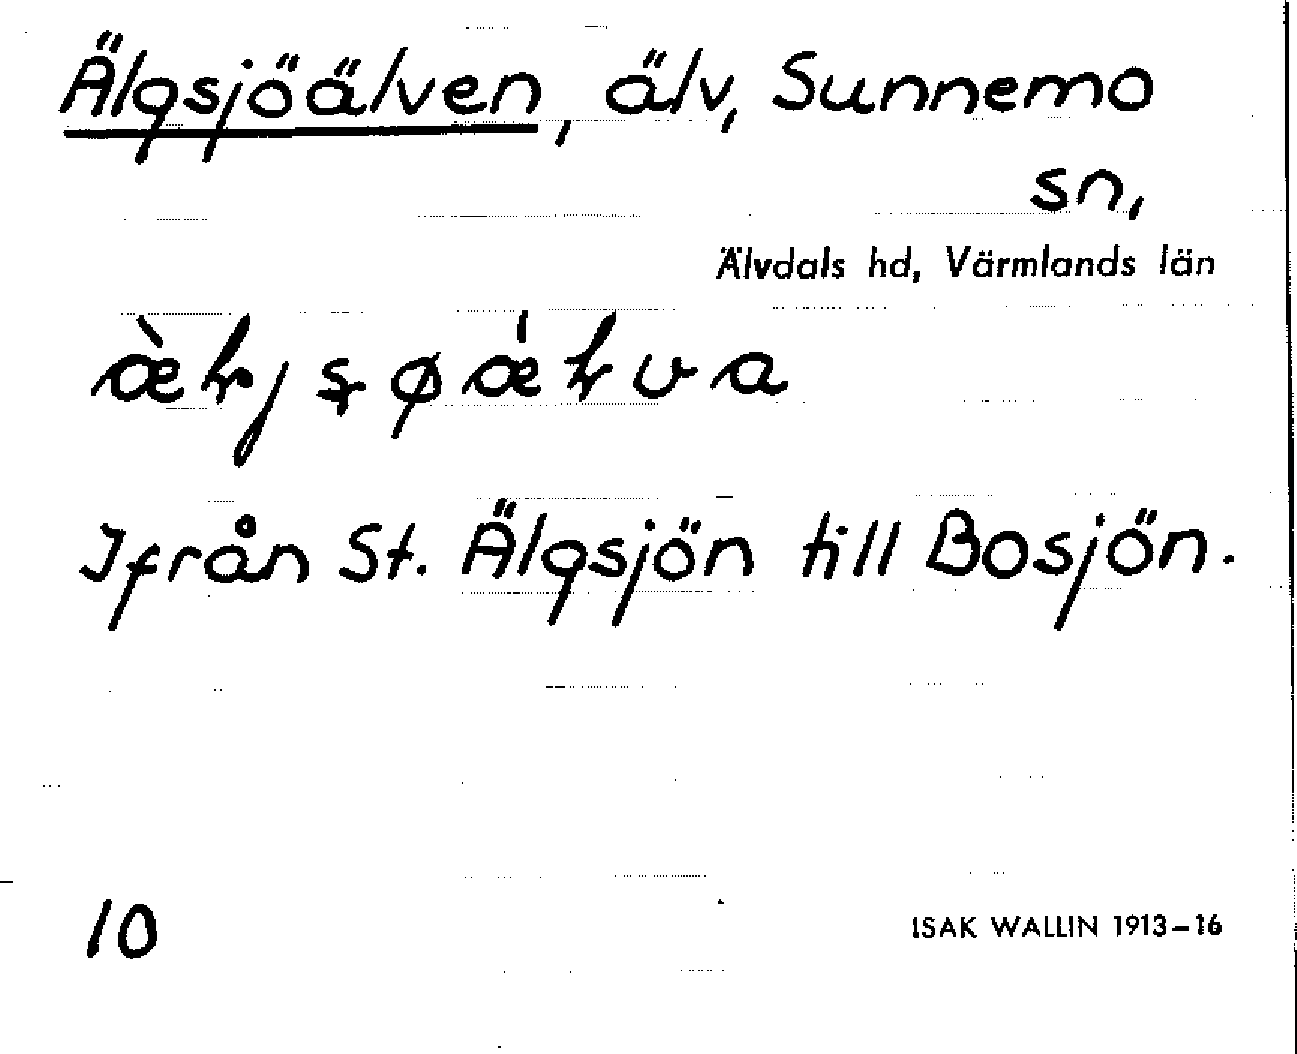 Älgsjöälven, älv, Sunnemo
sn,
Älvdals hd, Värmlands län
Ifrån St. Älgsjön till Bosjön.
10
ISAK WALLIN 1913–16